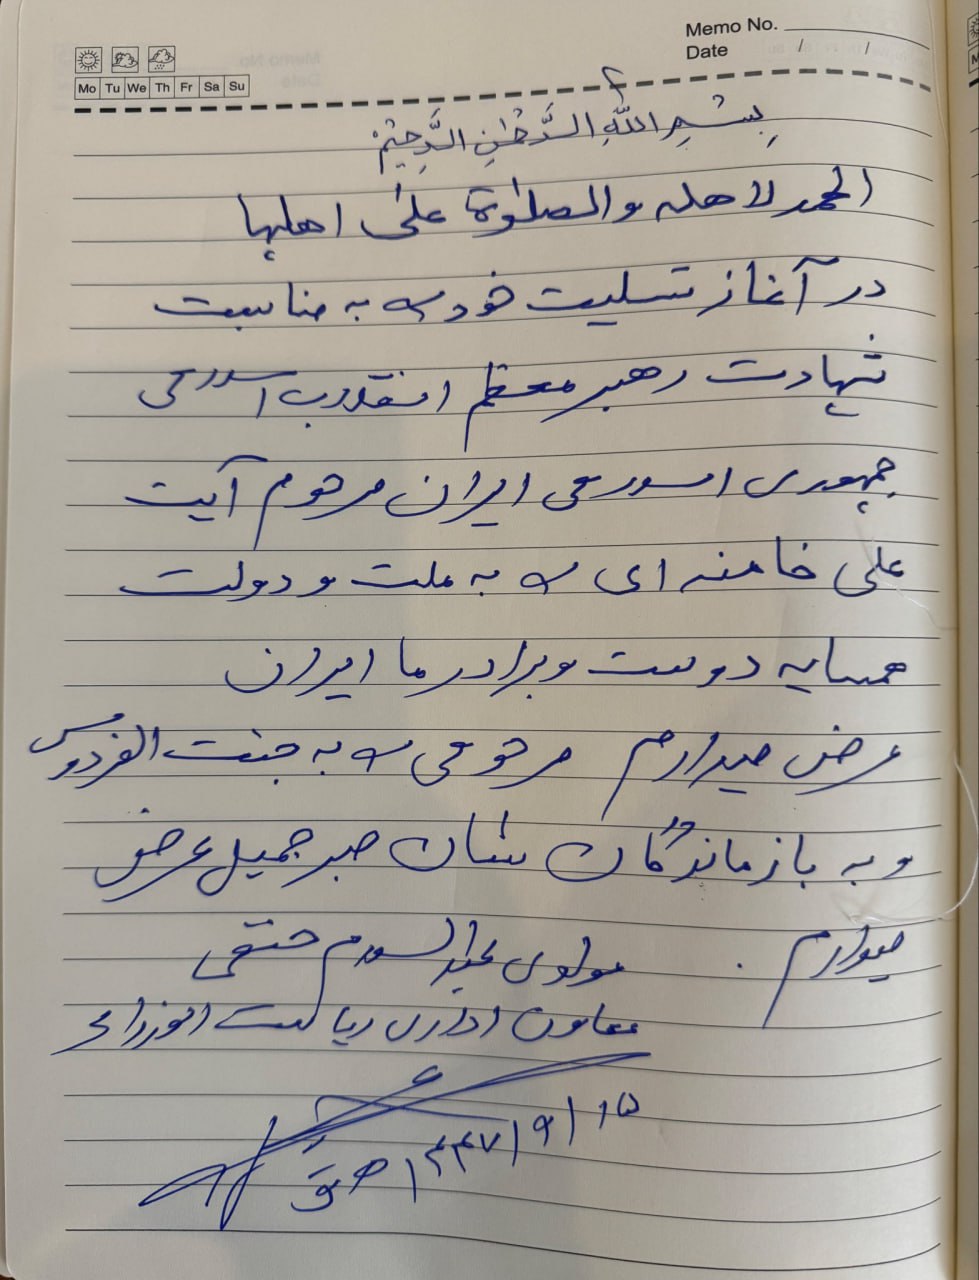 Memo No.
Date / /
Mo Tu We Th Fr Sa Su
بِسْمِ اللّٰهِ الرَّحْمٰنِ الرَّحِيْمْ
الحمد لاهله والصلوٰة علیٰ اهلها
در آغاز تسلیت خود را به مناسبت
شهادت رهبر معظم انقلاب اسلامی
جمهوری اسلامی ایران مرحوم آیت
علی خامنه ای را به ملت و دولت
همسایه دوست و برادر ما ایران
عرض میدارم مرحومی را به جنت الفردوس
و به بازماندگان شان صبر جمیل عرض
میدارم .
مولوی عبدالسلام حنفی
معاون اداری ریاست الوزراء
۱۴۴۷/۹/۱۵ هـ ق